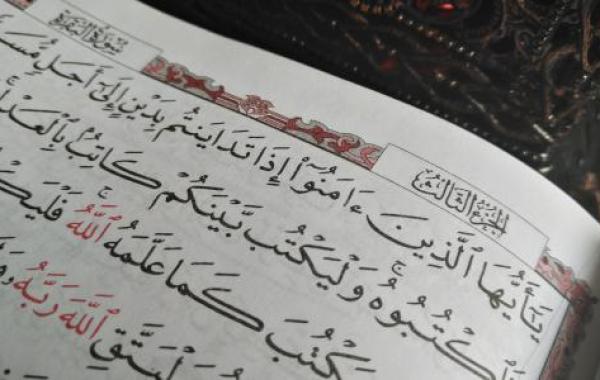 الجزء الثالث سورة البقرة
يَٰٓأَيُّهَا ٱلَّذِينَ ءَامَنُوٓا۟ إِذَا تَدَايَنتُم بِدَيْنٍ إِلَىٰٓ أَجَلٍ مُّسَـ
فَٱكْتُبُوهُ ۚ وَلْيَكْتُب بَّيْنَكُمْ كَاتِبٌۢ بِٱلْعَدْ
يَكْتُبَ كَمَا عَلَّمَهُ ٱللَّهُ ۚ فَلْيَكْـ
وَلْيَتَّقِ ٱللَّهَ رَبَّهُۥ